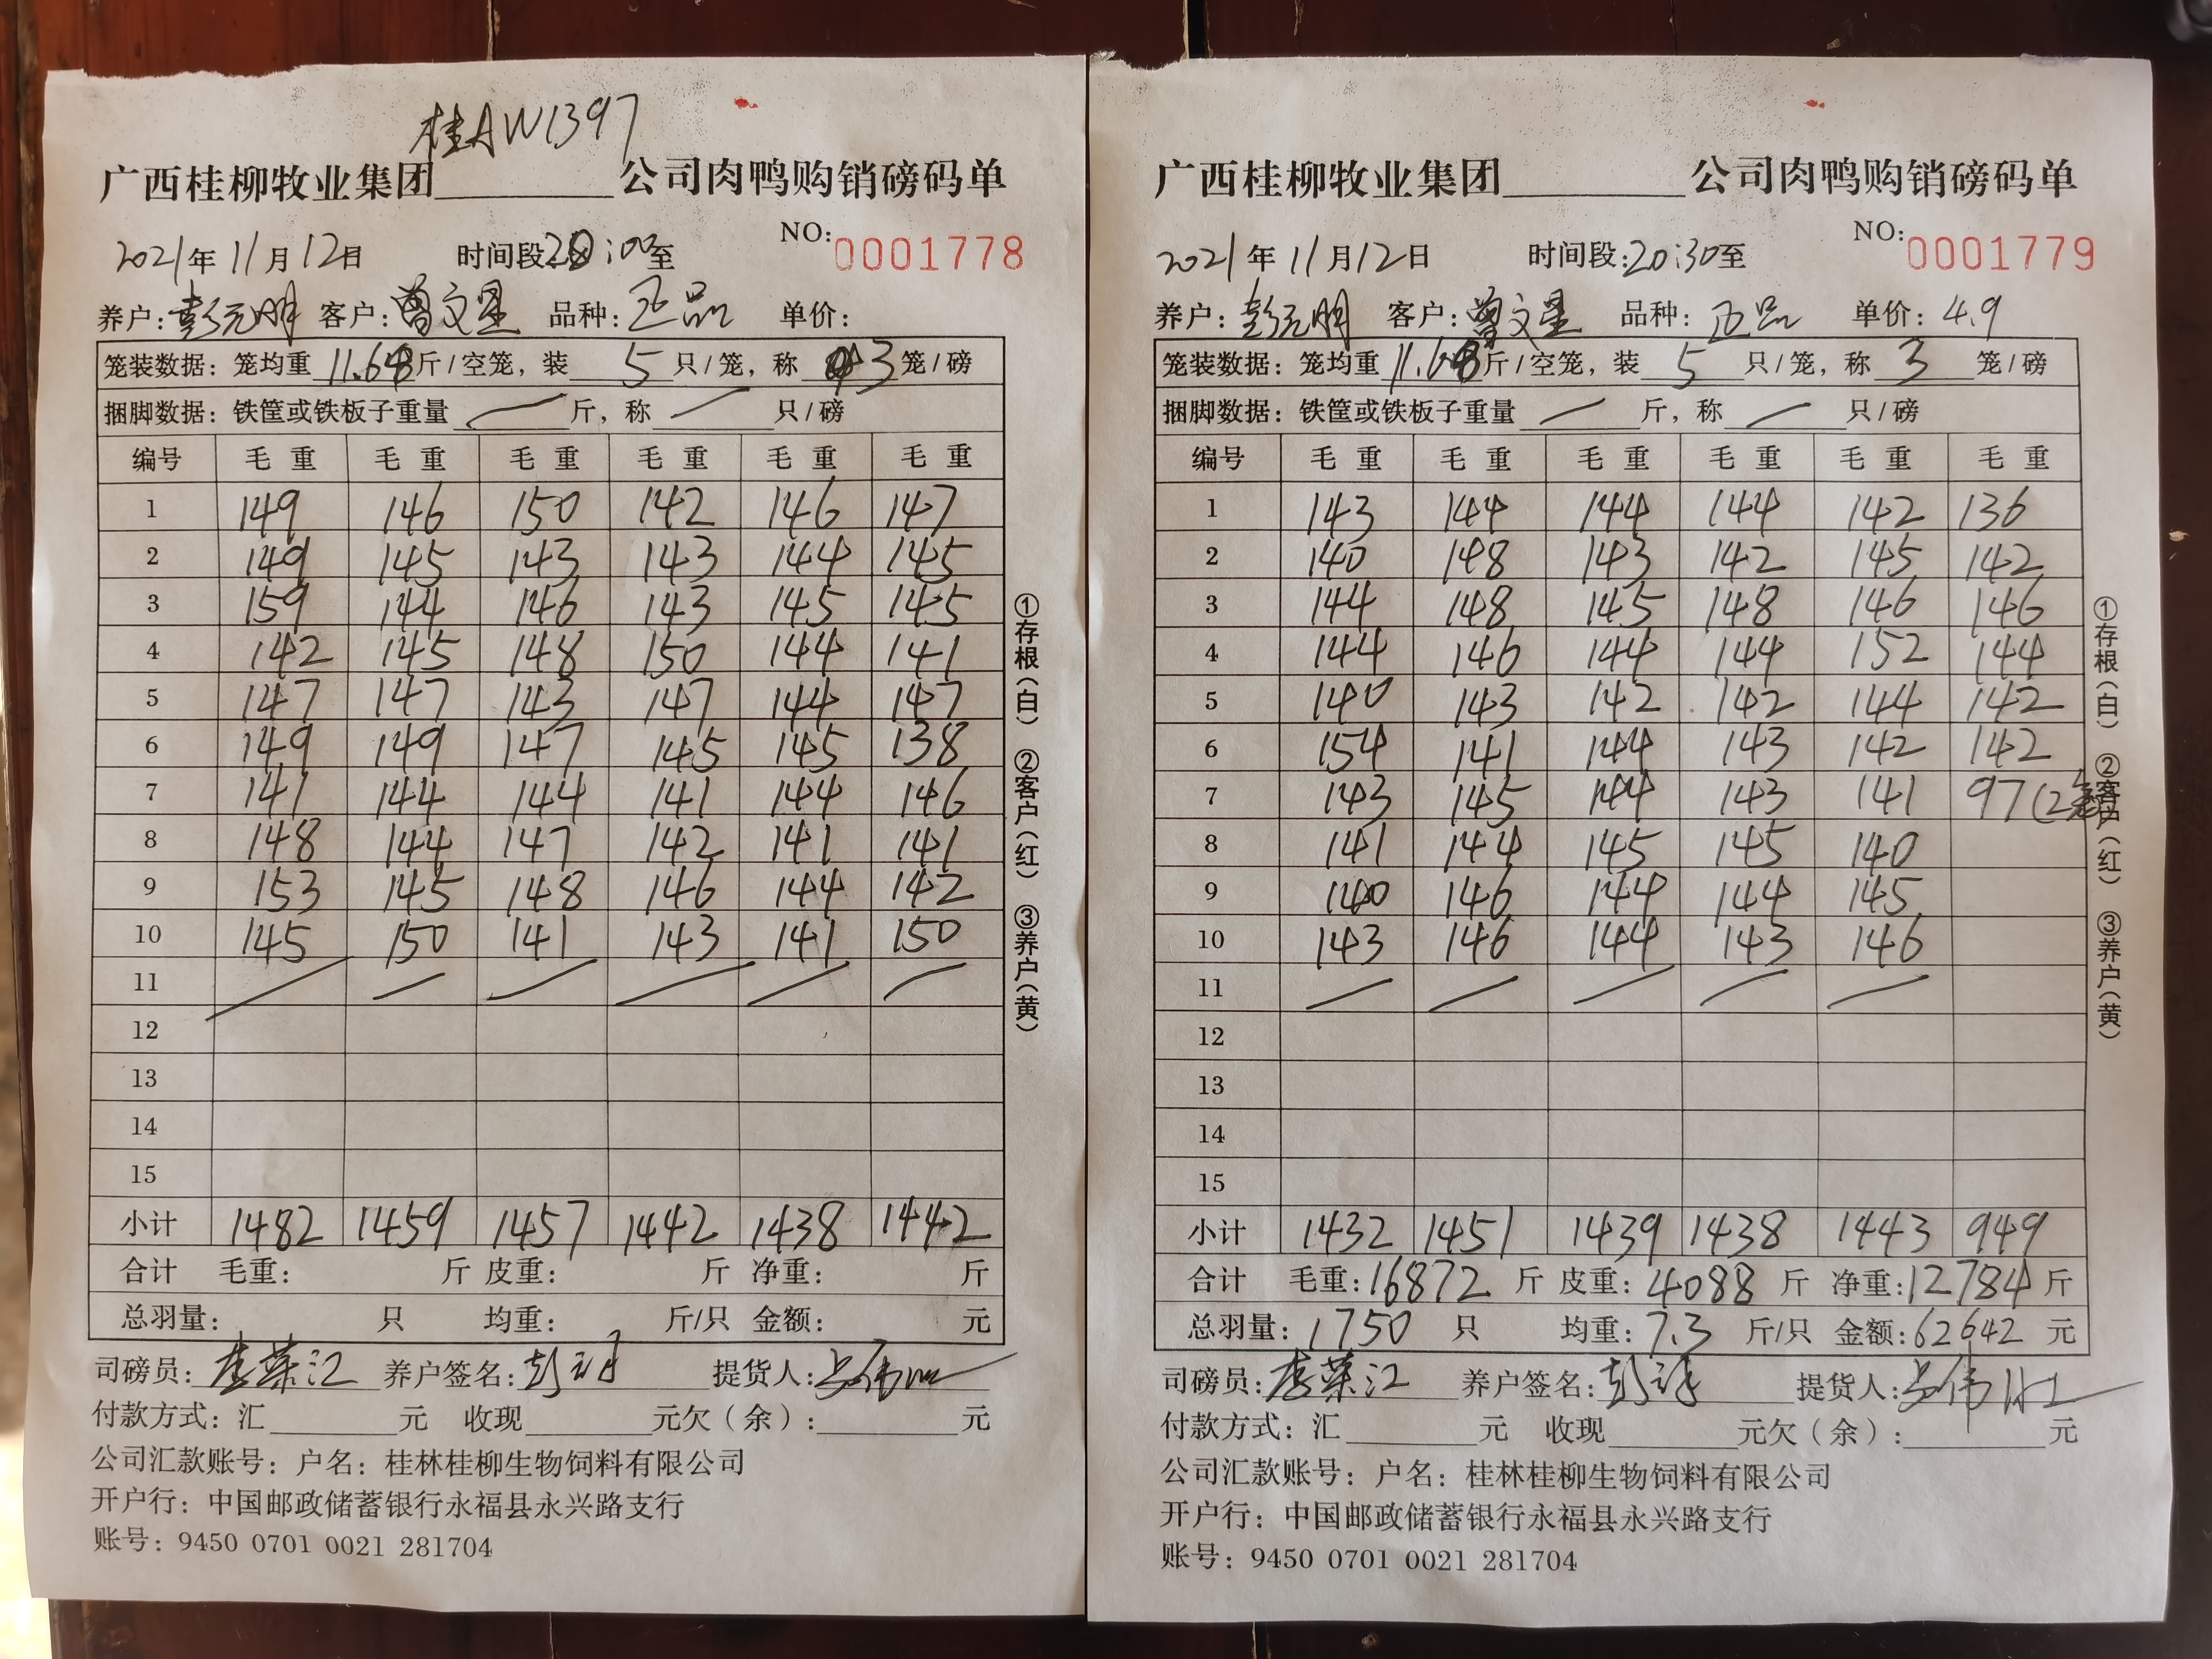 桂AW1397
广西桂柳牧业集团 公司肉鸭购销磅码单
NO: 0001778
2021年11月12日 时间段:20:00至
养户:彭元明 客户:曾文星 品种:正品 单价:
笼装数据:笼均重 11.68斤/空笼,装 5 只/笼,称 3 笼/磅
捆脚数据:铁筐或铁板子重量 斤,称 只/磅
编号 毛重 毛重 毛重 毛重 毛重 毛重
1 149 146 150 142 146 147
2 149 145 143 143 144 145
3 159 144 146 143 145 145
4 142 145 148 150 144 141
5 147 147 143 147 144 147
6 149 149 147 145 145 138
7 141 144 144 141 144 146
8 148 144 147 142 141 141
9 153 145 148 146 144 142
10 145 150 141 143 141 150
11
12
13
14
15
小计 1482 1459 1457 1442 1438 1442
合计 毛重: 斤 皮重: 斤 净重: 斤
总羽量: 只 均重: 斤/只 金额: 元
司磅员:李荣江 养户签名: 提货人:
付款方式:汇 元 收现 元欠(余): 元
公司汇款账号:户名:桂林桂柳生物饲料有限公司
开户行:中国邮政储蓄银行永福县永兴路支行
账号:9450 0701 0021 281704
①存根(白) ②客户(红) ③养户(黄)
广西桂柳牧业集团 公司肉鸭购销磅码单
NO: 0001779
2021年11月12日 时间段:20:30至
养户:彭元明 客户:曾文星 品种:正品 单价:4.9
笼装数据:笼均重 11.68斤/空笼,装 5 只/笼,称 3 笼/磅
捆脚数据:铁筐或铁板子重量 斤,称 只/磅
编号 毛重 毛重 毛重 毛重 毛重 毛重
1 143 144 144 144 142 136
2 140 148 143 142 145 142
3 144 148 145 148 146 146
4 144 146 144 144 152 144
5 140 143 142 142 144 142
6 154 141 144 143 142 142
7 143 145 144 143 141 97(2笼)
8 141 144 145 145 140
9 140 146 144 144 145
10 143 146 144 143 146
11
12
13
14
15
小计 1432 1451 1439 1438 1443 949
合计 毛重:16872 斤 皮重:4088 斤 净重:12784斤
总羽量:1750 只 均重:7.3 斤/只 金额:62642 元
司磅员:李荣江 养户签名: 提货人:
付款方式:汇 元 收现 元欠(余): 元
公司汇款账号:户名:桂林桂柳生物饲料有限公司
开户行:中国邮政储蓄银行永福县永兴路支行
账号:9450 0701 0021 281704
①存根(白) ②客户(红) ③养户(黄)